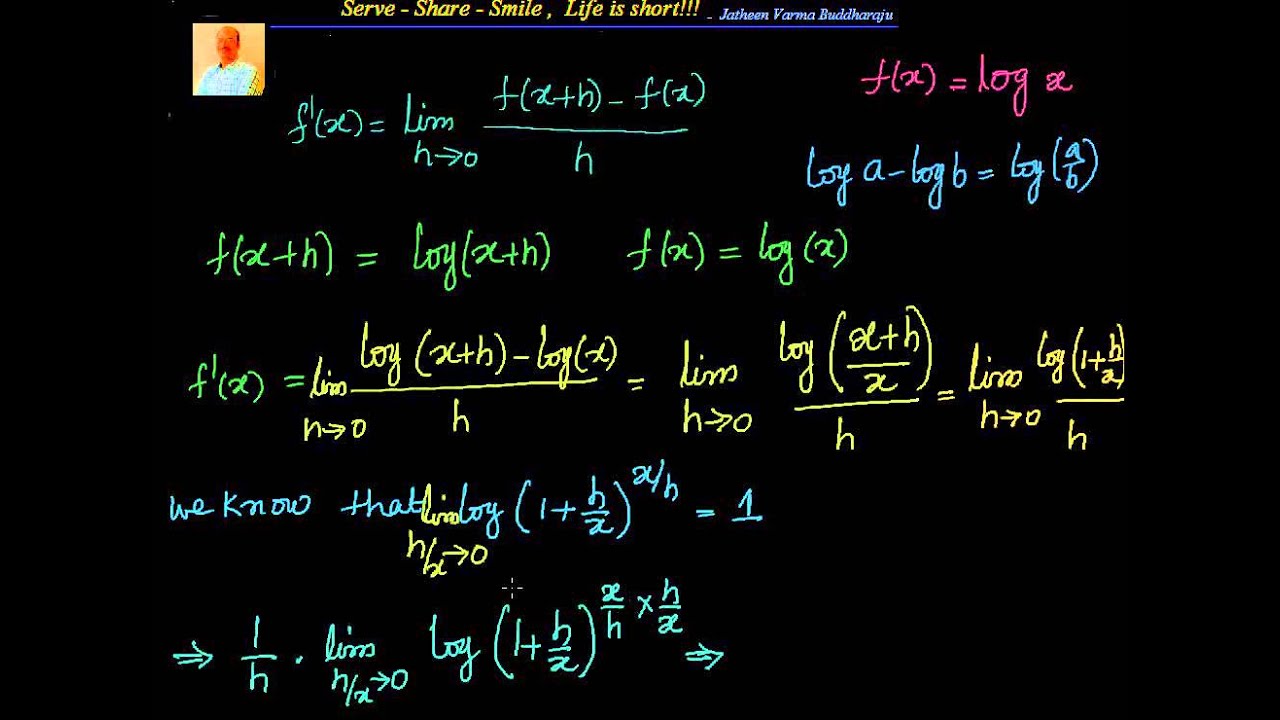 Serve - Share - Smile , Life is short!!! - Jatheen Varma Buddharaju
f(x) = log x
f'(x) = lim h→0 (f(x+h) - f(x))/h
log a - log b = log(a/b)
f(x+h) = log(x+h) f(x) = log(x)
f'(x) = lim h→0 (log(x+h) - log(x))/h = lim h→0 log((x+h)/x)/h = lim h→0 log(1+h/x)/h
we know that lim h/x→0 log(1+h/x)^(x/h) = 1
⇒ 1/h . lim h/x→0 log(1+h/x)^(x/h × h/x) ⇒